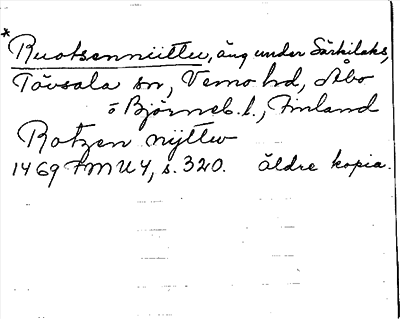 * Ruotsenniittu, äng under Särkilaks,
Tövsala sn, Vemo hd, Åbo
o Björneb. l., Finland
Rotzen nyttw
1469 FMU 4, s. 320. äldre kopia.